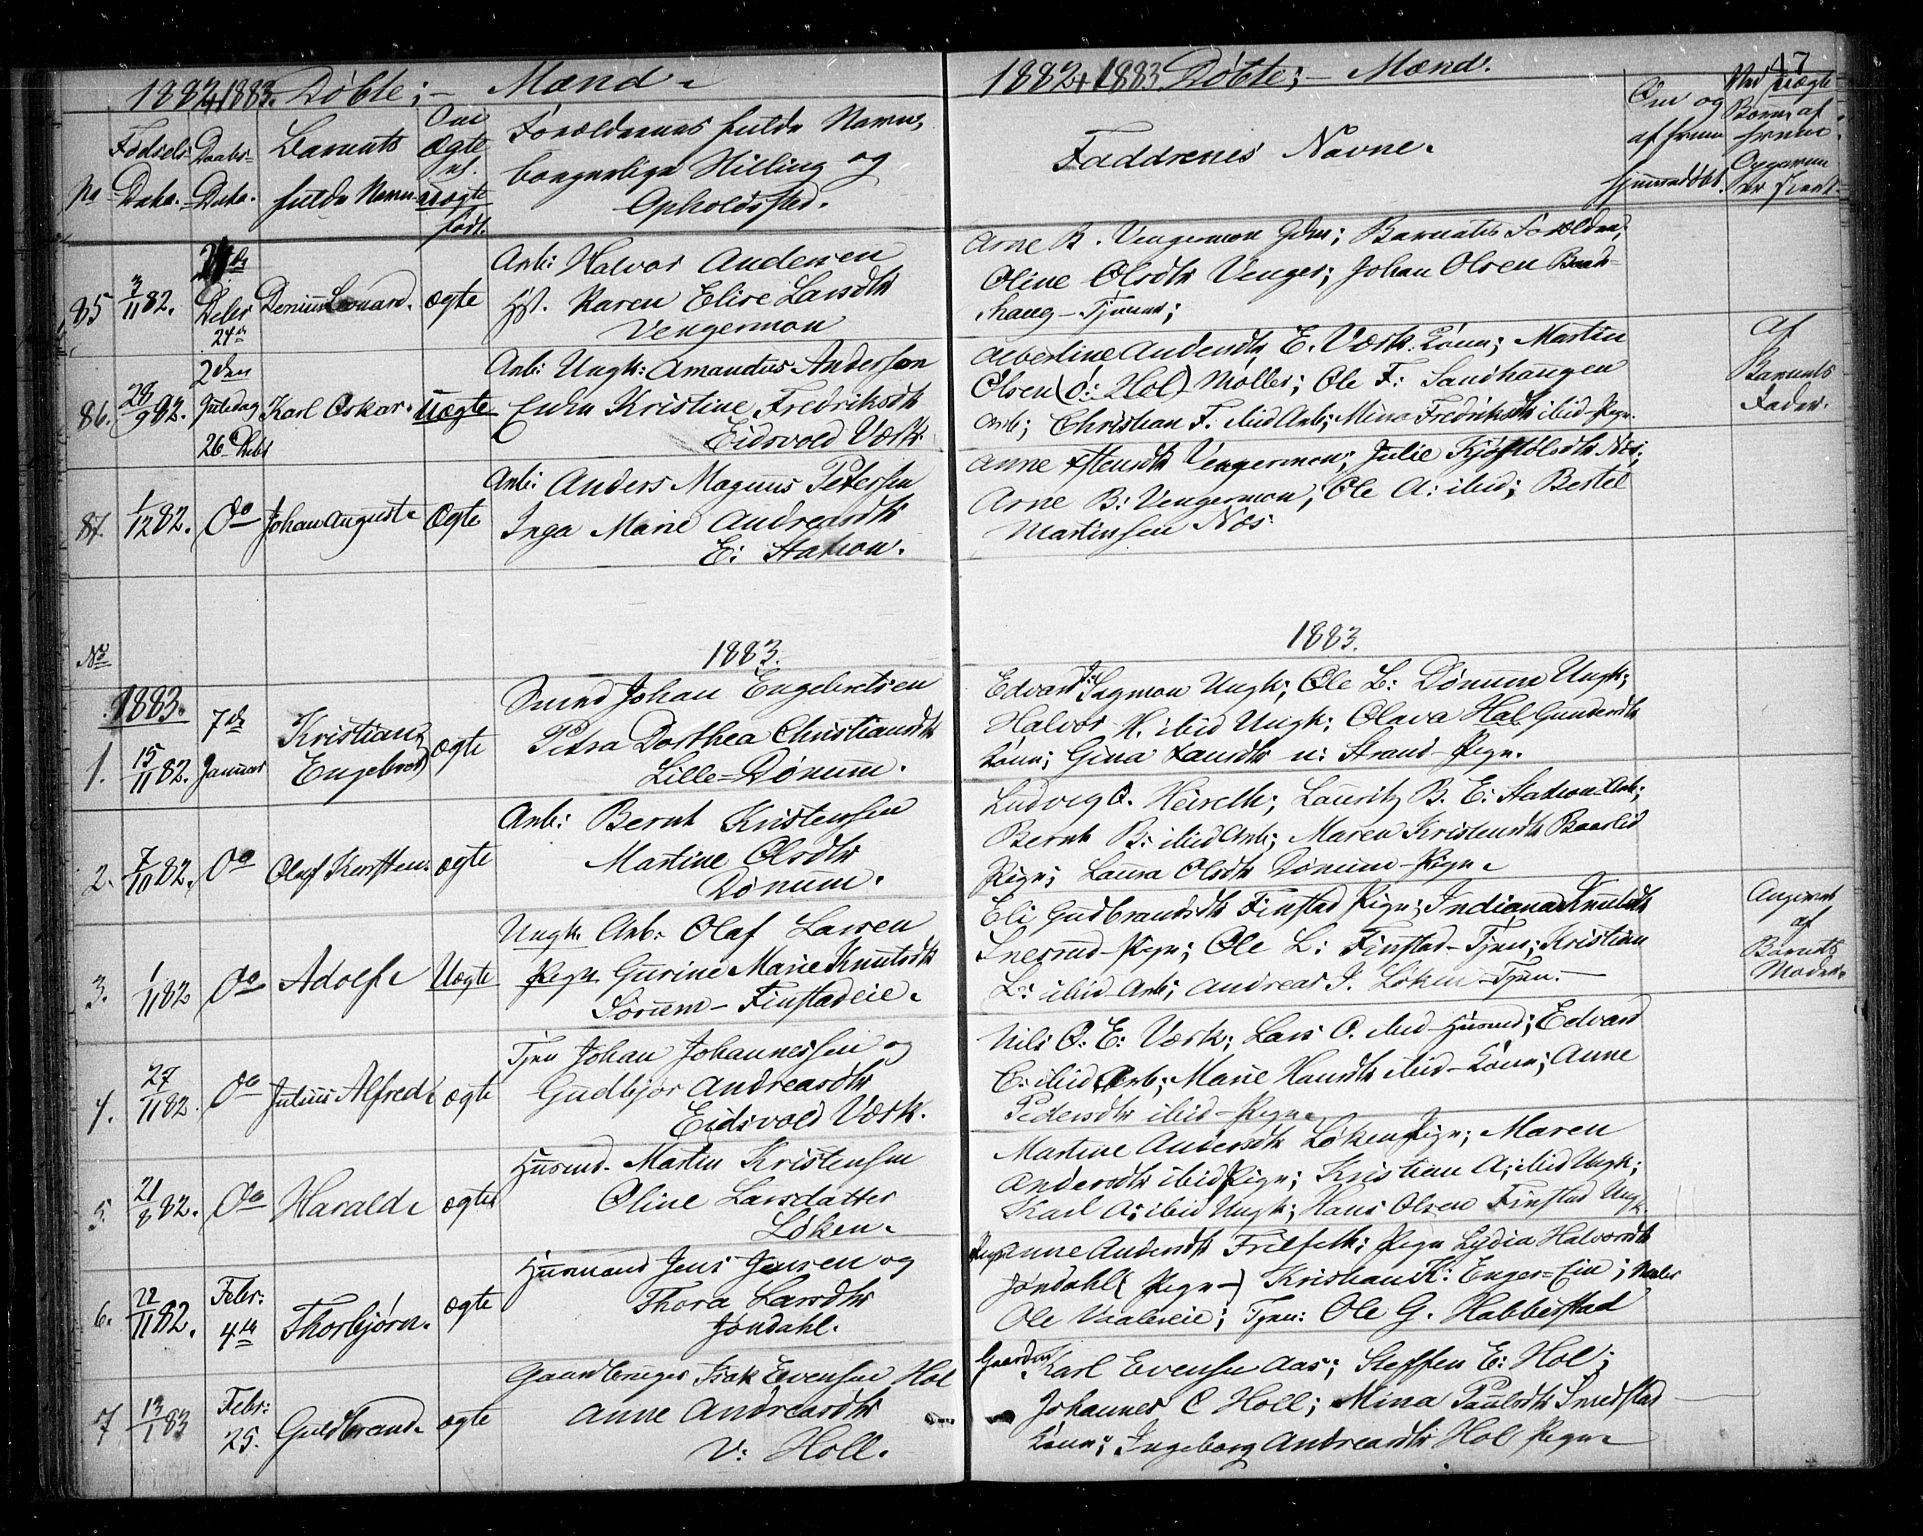 1882 & 1883. Döbte; – Mænd.
No
Fødsels-
Data.
Daabs-
Data.
Barnets
fulde Navn.
Om
ægte
el.
uægte
født.
Forældrenes fulde Navne,
borgerlige Stilling og
Opholdssted.
85
3/11 82.
Debr
24de
Leonard.
Ægte
Arb: Halvor Andersen
Hst. Karen Elise Larsdtr
Vengermon
86.
28/9 82.
2den
Juledag
26 Debr
Karl Oskar.
Uægte
Arb: Ungk: Amandus Andersen
Enken Kristine Fredriksdtr
Eidsvold Værk.
87.
1/12 82.
Do
Johan August
Ægte
Arb: Anders Magnus Petersen
Inga Marie Andreasdtr
E: Station.
No
1883.
1883.
1.
15/11 82.
7de
Januar
Kristian
Engebret
ægte
Smed Johan Engebretsen
Petra Dorthea Christiansdtr
Lille-Dønnum.
2.
7/10 82.
Do
Olaf Kersten.
ægte
Arb: Bernt Kristensen
Martine Olsdtr
Dønnum.
3.
1/11 82
Do
Adolf.
Uægte
Ungk. Arb. Olaf Larsen
Pign Gurine Marie Knutsdtr
Sørum – Finstadeie.
4.
27/11 82.
Do
Julius Alfred
ægte
Tjen Johan Johannessen og
Gudbjor Andreasdtr
Eidsvold Værk.
5.
21/8 82.
Do
Harald.
ægte
Husmd. Martin Kristensen
Oline Larsdatter
Løken.
6.
22/11 82.
Febr:
4de
Thorbjørn.
ægte
Husmand Jens Jensen og
Thora Larsdtr
Jøndahl.
7
13/1 83
Febr:
25.
Guldbrand.
ægte
Gaardbruger Isak Evensen Hol
Anne Andreasdtr
V: Holl.
1882 & 1883 Döbte; – Mænd.
17
Faddrenes Navne.
Om og
af hvem
hjemmedøbt.
Ved uægte
Børn, af
hvem
Opgaven
er skeet
Arne B. Vengermoen Gdm; Barnets Forældre;
Oline Olsdtr Venger; Johan Olsen
haug – Tjener;
Albertine Andersdtr E. Værk. Kone; Martin
Olsen (ö: Hol) Møller; Ole F: Sandhaugen
Arb; Christian F. ibid Arb; Mina Fredriksdtr ibid – Pige.
Af
Barnets
Fader.
Anne Vengermoen; Julie Kjøstolsdtr Næs;
Arne B: Vengermoen; Ole A: ibid; Bertel
Martinsen Næs.
1883.
Edvard Sagmoen Ungk; Ole L: Dønnum Ungk;
Halvor H. ibid Ungk; Olava Hol Gundersdtr
Kone; Gina Larsdtr n: Strand – Pige.
Ludvig O. Heireth; Lauritz B. E: Station Arb;
Bernt B: ibid Arb; Maren Kristensdtr Baarlid
Pige; Laura Olsdtr Dønnum – Pige.
Eli Gudbrandsdtr Finstad Pige; Indiana Knutsdtr
Snerud – Pige; Ole L: Finstad – Tjen; Kristian
L: ibid Arb; Andreas J. Løken – Tjen.
Angivet
af
Barnets
Moder.
Nils O. E: Værk; Lars O. ibid – Husmd; Edvard
E. ibid Arb; Marie Hansdtr ibid – Kone; Anne
Pedersdtr ibid – Pige
Martine Andersdtr Løken Pige; Maren
Andersdtr ibid Pige; Kristian A; ibid Ungk;
Karl A; ibid Ungk; Hans Olsen Finstad Ungk.
Pige Anne Andersdtr Frilseth; Pige Lydia Halvorsdtr
Jøndahl (Pige) Kristian K: Enger-Ein; Maler
Ole Valereie; Tjen: Ole G. Habberstad
Gaardm Karl Evensen Aas; Steffen E: Hol;
Johannes E Holl; Mina Paulsdtr Smedstad
Kone; Ingeborg Andreasdtr Hol Pige